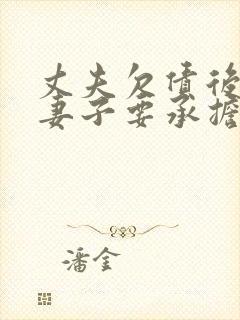 丈夫欠债后
妻子要承担
潘金